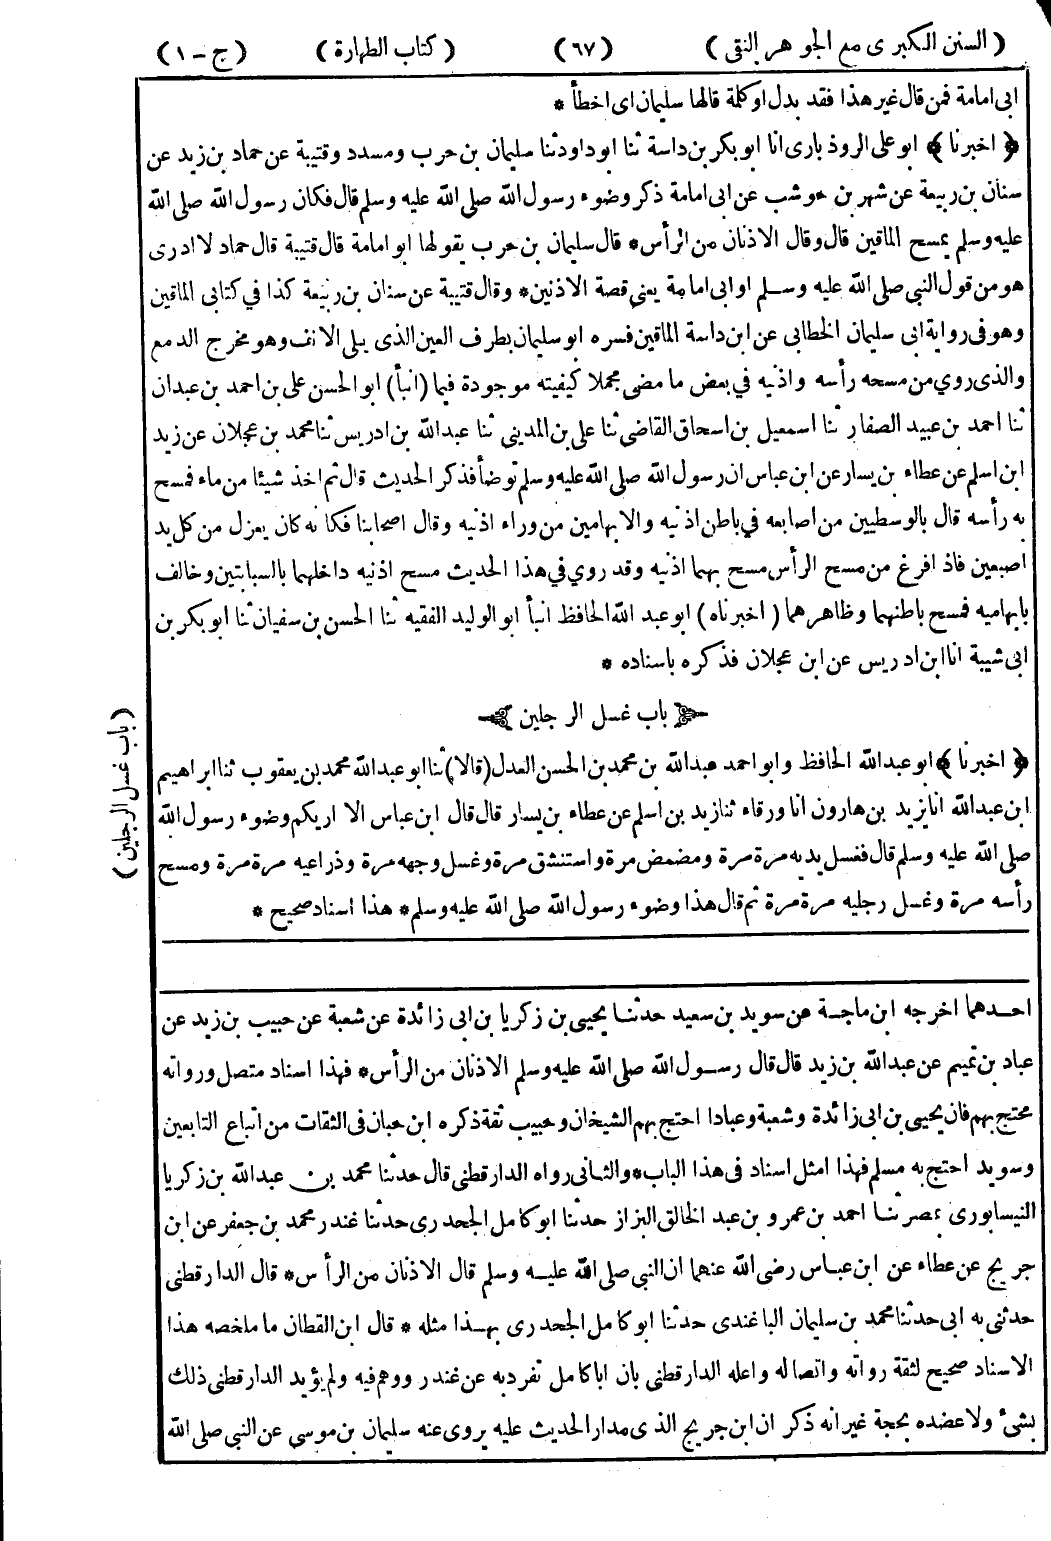 ( السنن الكبرى مع الجوهر النقى ) (٦٧) ( كتاب الطهارة ) ( ج - ١ )
ابى امامة فمن قال غير هذا فقد بدل او كلمة قالها سليمان اى اخطأ *
﴿ اخبرنا ﴾ ابو على الروذبارى انا ابو بكر بن داسة ثنا ابو داود ثنا سليمان بن حرب ومسدد وقتيبة عن حماد بن زيد عن
سنان بن ربيعة عن شهر بن حوشب عن ابى امامة ذكر وضوء رسول الله صلى الله عليه وسلم قال فكان رسول الله صلى الله
عليه وسلم يمسح الماقين قال وقال الاذنان من الرأس * قال سليمان بن حرب يقولها ابو امامة قال قتيبة قال حماد لا ادرى
هو من قول النبى صلى الله عليه وسلم او ابى امامة يعنى قصة الاذنين * وقال قتيبة عن سنان بن ربيعة كذا في كتابى الماقين
وهو فى رواية ابى سليمان الخطابى عن ابن داسة الماقين فسره ابو سليمان بطرف العين الذى يلى الانف وهو مخرج الدمع
والذى روي من مسحه رأسه واذنيه في بعض ما مضى مجملا كيفيته موجودة فيما ( انبأ ) ابو الحسن على بن احمد بن عبدان
ثنا احمد بن عبيد الصفار ثنا اسمعيل بن اسحاق القاضى ثنا على بن المدينى ثنا عبدالله بن ادريس ثنا محمد بن عجلان عن زيد
ابن اسلم عن عطاء بن يسار عن ابن عباس ان رسول الله صلى الله عليه وسلم توضأ فذكر الحديث قال ثم اخذ شيئا من ماء فمسح
به رأسه قال بالوسطيين من اصابعه في باطن اذنيه والابهامين من وراء اذنيه وقال اصحابنا فكانه كان يعزل من كل يد
اصبعين فاذ افرغ من مسح الرأس مسح بهما اذنيه وقد روي في هذا الحديث مسح اذنيه داخلهما بالسبابتين وخالف
بابهاميه فمسح باطنهما وظاهرهما ( اخبرناه ) ابو عبد الله الحافظ انبأ ابو الوليد الفقيه ثنا الحسن بن سفيان ثنا ابو بكر بن
ابى شيبة انا ابن ادريس عن ابن عجلان فذكره باسناده *
باب غسل الرجلين
( باب غسل الرجلين )
﴿ اخبرنا ﴾ ابو عبدالله الحافظ وابو احمد عبدالله بن محمد بن الحسن العدل (قالا) ثنا ابو عبدالله محمد بن يعقوب ثنا ابراهيم
ابن عبدالله انا يزيد بن هارون انا ورقاء ثنا زيد بن اسلم عن عطاء بن يسار قال قال ابن عباس الا اريكم وضوء رسول الله
صلى الله عليه وسلم قال فغسل يديه مرة مرة ومضمض مرة واستنشق مرة وغسل وجهه مرة وذراعيه مرة مرة ومسح
رأسه مرة وغسل رجليه مرة مرة ثم قال هذا وضوء رسول الله صلى الله عليه وسلم * هذا اسناد صحيح *
احدهما اخرجه ابن ماجة عن سويد بن سعيد حدثنا يحيى بن زكريا بن ابى زائدة عن شعبة عن حبيب بن زيد عن
عباد بن تميم عن عبدالله بن زيد قال قال رسول الله صلى الله عليه وسلم الاذنان من الرأس * فهذا اسناد متصل ورواته
محتج بهم فان يحيى بن ابى زائدة وشعبة وعبادا احتج بهم الشيخان وحبيب ثقة ذكره ابن حبان فى الثقات من اتباع التابعين
وسويد احتج به مسلم فهذا امثل اسناد فى هذا الباب * والثانى رواه الدارقطنى قال حدثنا محمد بن عبدالله بن زكريا
النيسابورى بمصر ثنا احمد بن عمرو بن عبد الخالق البزاز حدثنا ابو كامل الجحدرى حدثنا غندر محمد بن جعفر عن ابن
جريج عن عطاء عن ابن عباس رضى الله عنهما ان النبى صلى الله عليه وسلم قال الاذنان من الرأس * قال الدارقطنى
حدثنى به ابى حدثنا محمد بن سليمان الباغندى حدثنا ابو كامل الجحدرى بهذا مثله * قال ابن القطان ما ملخصه هذا
الاسناد صحيح لثقة رواته واتصاله واعله الدارقطنى بان ابا كامل تفرد به عن غندر ووهم فيه ولم يؤيد الدارقطنى ذلك
بشئ ولا عضده بحجة غير انه ذكر ان ابن جريج الذى مدار الحديث عليه يروى عنه سليمان بن موسى عن النبى صلى الله